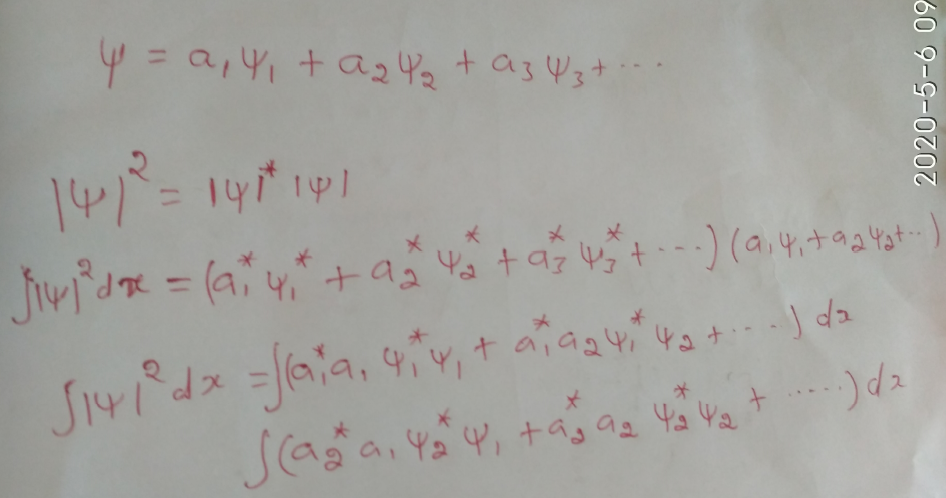 ψ = a₁ψ₁ + a₂ψ₂ + a₃ψ₃ + ...
|ψ|² = |ψ|* |ψ|
∫|ψ|²dx = (a₁*ψ₁* + a₂*ψ₂* + a₃*ψ₃* + ....) (a₁ψ₁ + a₂ψ₂+..)
∫|ψ|²dx = ∫(a₁*a₁ψ₁*ψ₁ + a₁*a₂ψ₁*ψ₂ + ....) dx
∫(a₂*a₁ψ₂*ψ₁ + a₂*a₂ψ₂*ψ₂ + .....) dx
2020-5-6 09